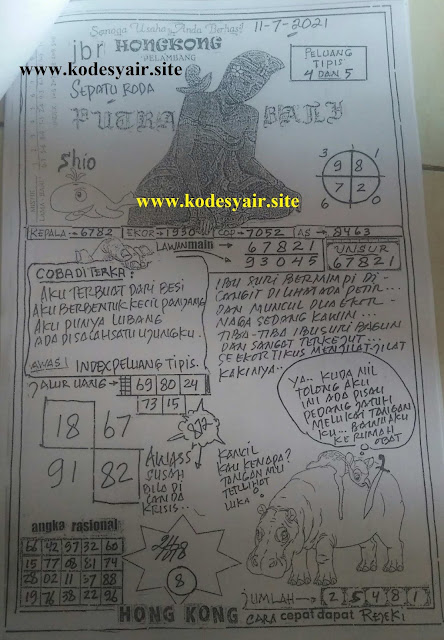 Semoga Usaha Anda Berhasil
11-7-2021
jbr HONGKONG
PELAMBANG
www.kodesyair.site
SEPATU RODA
PELUANG
TIPIS
4 DAN 5
PUTRA BALI
Shio
3 1
9 8
7 2
6 0
www.kodesyair.site
KEPALA→6782 EKOR→1930 COP→7052 AS→8463
LAWAN main 67821
93045
UNSUR
67821
COBA DI TERKA:
AKU TERBUAT DARI BESI
AKU BERBENTUK KECIL PANJANG
AKU PUNYA LUBANG
ADA DI SALAH SATU UJUNGKU.
AWAS! INDEX PELUANG TIPIS.
IBU SURI BERMIMPI DI-
LANGIT DI LIHAT ADA PETIR...
DAN MUNCUL DUA EKOR
NAGA SEDANG KAWIN...
TIBA-TIBA IBU SURI BAGUN
DAN SANGAT TERKEJUT...
SEEKOR TIKUS MENJILAT-JILAT
KAKINYA..
JALUR UANG→ 69 80 24
73 15
18 67
91 82
AWASS
SUSAH
BILA DI
LANDA
KRISIS..
KANCIL
KAU KENAPA?
TANGAN MU
TERLIHAT
LUKA
YA.. KUDA NIL
TOLONG AKU
INI ADA PISAU
PEDANG JATUH
MELUKAI TANGAN
KU... BAWA AKU
KE RUMAH
OBAT
angka rasional
66 42 57 32 60
15 77 08 81 74
28 02 11 37 88
19 76 38 22 96
8
JUMLAH→ 2 5 4 8 1
HONG KONG CARA cepat dapat REJEKI